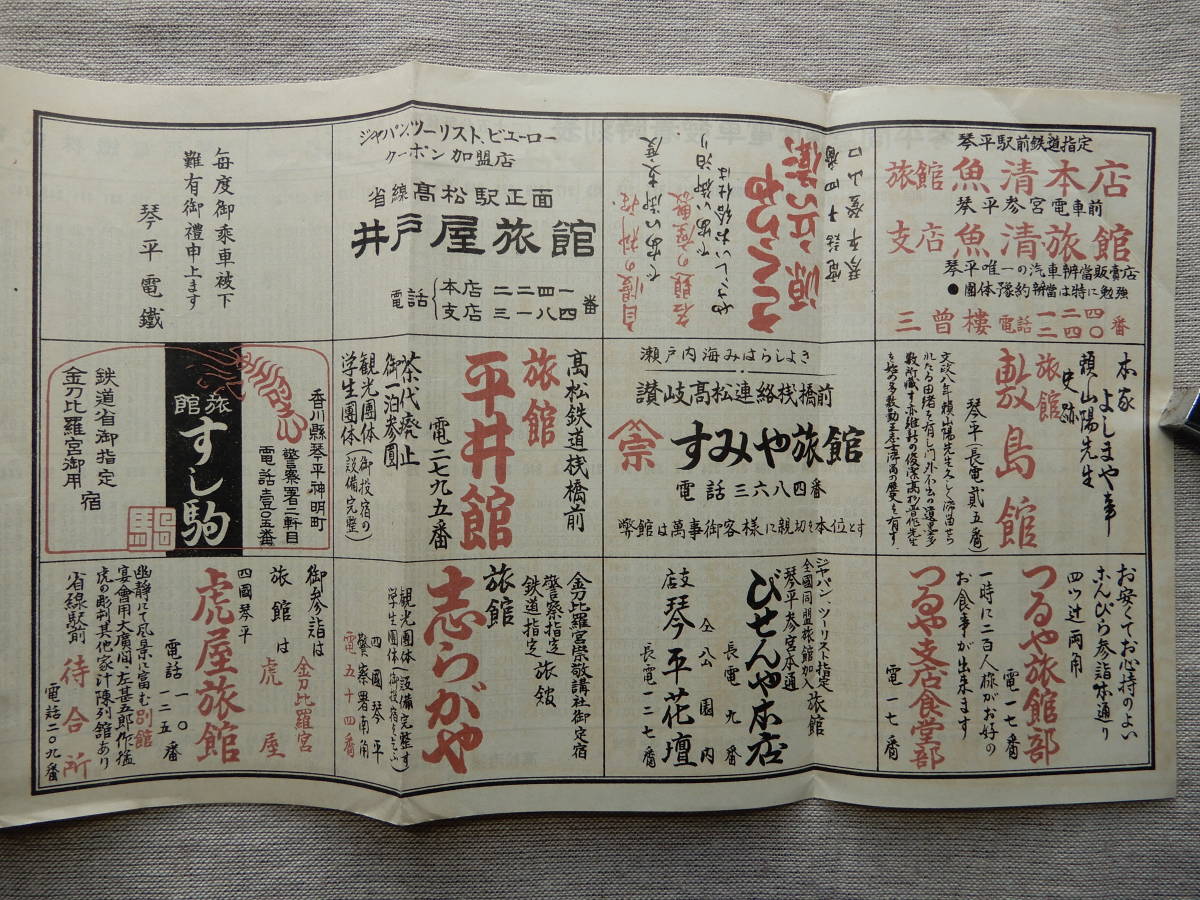 琴平駅前鉄道指定
旅館 魚清本店
琴平参宮電車前
支店 魚清旅館
琴平唯一の汽車辨当販賣店
●團体豫約辨當は特に勉強
三曾樓 電話一二四〇番
やさしいお給仕は
電話十四番
琴平登山口
ジャパン、ツーリスト、ビューロー
クーポン加盟店
省線髙松駅正面
井戸屋旅館
電話
本店 二二四一
支店 三一八四
番
毎度御乗車被下
難有御禮申上ます
琴平電鐵
本家 よしまや事
頼山陽先生
史跡
旅館
敷島館
琴平(長電貳五番)
瀬戸内海みはらしよき
讃岐髙松連絡桟橋前
崇 すみや旅館
電話三六八四番
弊館は萬事御客様に親切を本位とす
髙松鉄道桟橋前
旅館
平井館
電二七九五番
茶代廃止
御一泊参圓
観光團体
学生團体
(御投宿の
設備完整)
香川縣琴平神明町
警察署二軒目
電話壹〇五番
旅館
すし駒
鉄道省御指定
金刀比羅宮御用
宿
お安くてお心持のよい
こんぴら参詣本通り
四ツ辻両角
つるや旅館部
電一七番
一時に二百人様がお好の
お食事が出来ます
つるや支店食堂部
電一七番
ジャパン、ツーリスト指定
全國同盟旅館加入
琴平参宮本通
旅館
びせんや本店
長電九番
仝公園内
支店
琴平花壇
長電一二七番
金刀比羅宮崇敬講社御定宿
警察指定
鉄道指定
旅舘
旅館
志らがや
観光團体(設備完整す)
学生團体(御投宿をこふ)
四國琴平
警察署南角
電五十四番
御参詣は
金刀比羅宮
旅館は
虎屋
四國琴平
虎屋旅館
電話
一〇
一二五
番
幽静にて風景に富む別館
宴會用大廣間、左甚五郎作
虎の彫刻其他家什陳列館あり
省線駅前
待合所
電話二〇九番